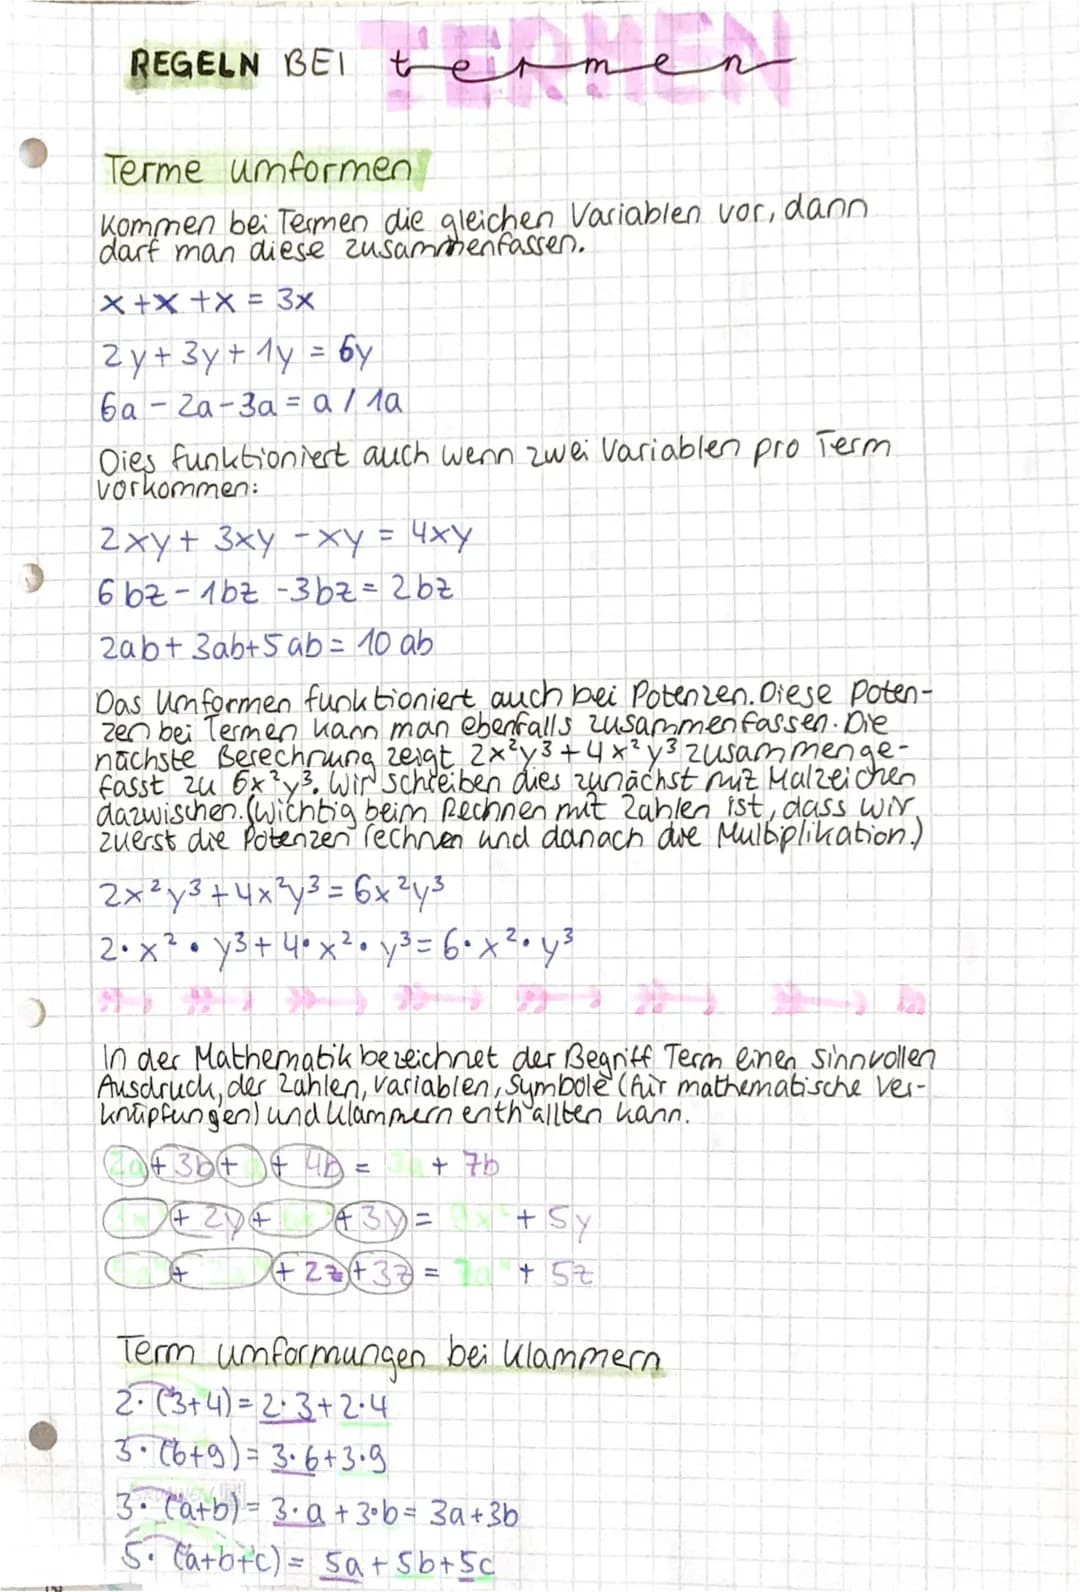 REGELN BEI termen
TERMEN
Terme umformen
Kommen bei Termen die gleichen Variablen vor, dann
darf man diese zusammenfassen.
x+x+x = 3x
2y+3y+1y = 6y
6a-2a-3a = a / 1a
Dies funktioniert auch wenn zwei Variablen pro Term
vorkommen:
2xy+ 3xy -xy = 4xy
6bz-1bz-3bz = 2bz
2ab+3ab+5ab = 10ab
Das Umformen funktioniert auch bei Potenzen. Diese Poten-
zen bei Termen kann man ebenfalls zusammenfassen. Die
nächste Berechnung zeigt 2x²y³+4x²y³ zusammenge-
fasst zu 6x²y³. Wir schreiben dies zunächst mit Malzeichen
dazwischen. (Wichtig beim Rechnen mit Zahlen ist, dass wir
zuerst die Potenzen rechnen und danach die Multiplikation.)
2x²y³+4x²y³ = 6x²y³
2·x²·y³+4·x²·y³ = 6·x²·y³
In der Mathematik bezeichnet der Begriff Term einen sinnvollen
Ausdruck, der Zahlen, Variablen, Symbole (für mathematische Ver-
knüpfungen) und Klammern enthallten kann.
2a+3b+ + 4b = 3a + 7b
+ 2y+ +3y = 9x² + 5y
+ +2z+3z = 7a + 5z
Term umformungen bei Klammern
2·(3+4) = 2·3+2·4
3·(6+9) = 3·6+3·9
3·(a+b) = 3·a+3·b = 3a+3b
5·(a+b+c) = 5a+5b+5c